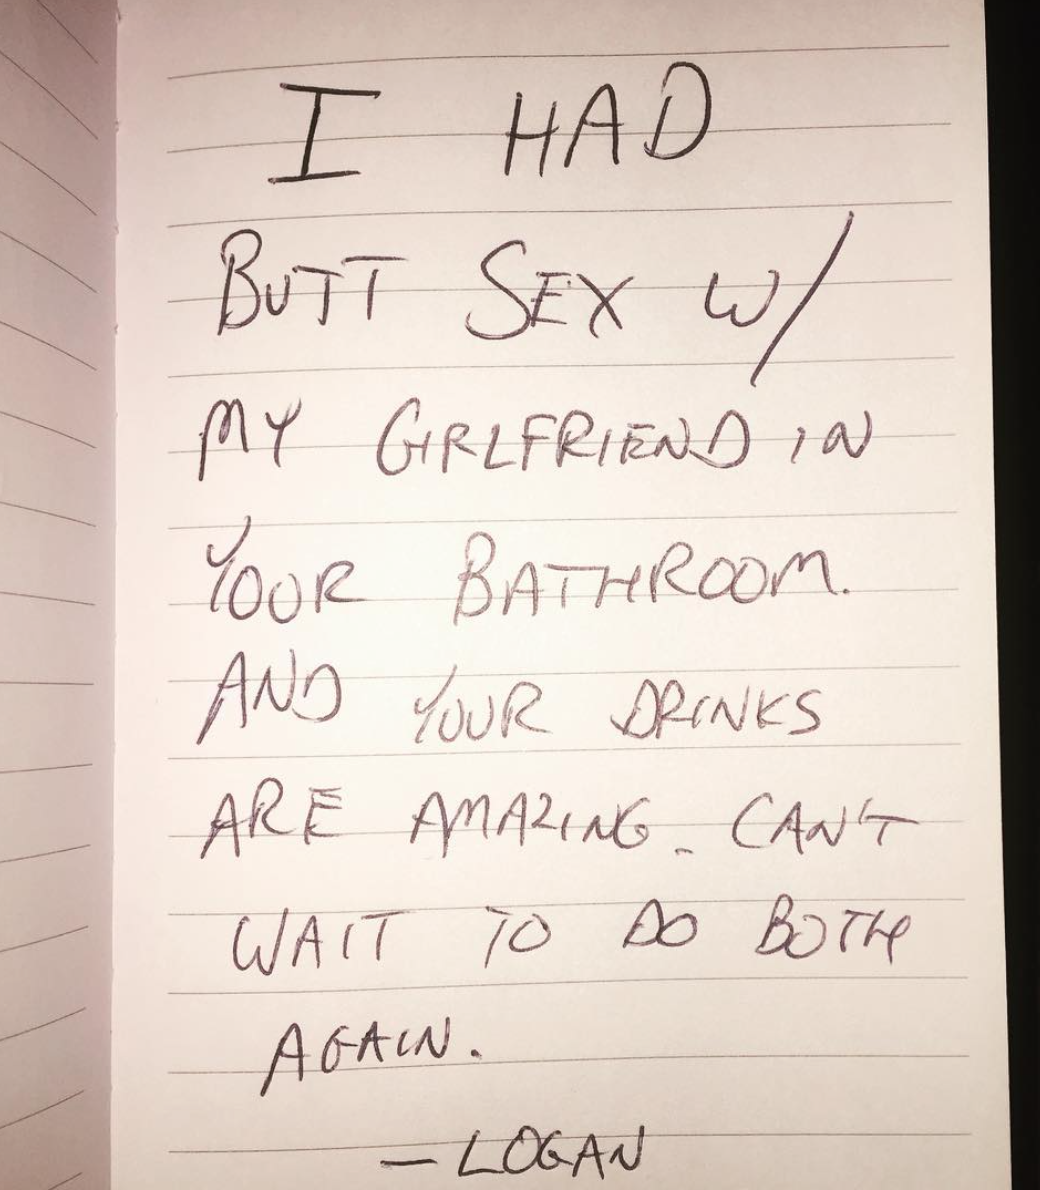 I HAD
BUTT SEX W/
MY GIRLFRIEND IN
YOUR BATHROOM.
AND YOUR DRINKS
ARE AMAZING. CAN'T
WAIT TO DO BOTH
AGAIN.
— LOGAN